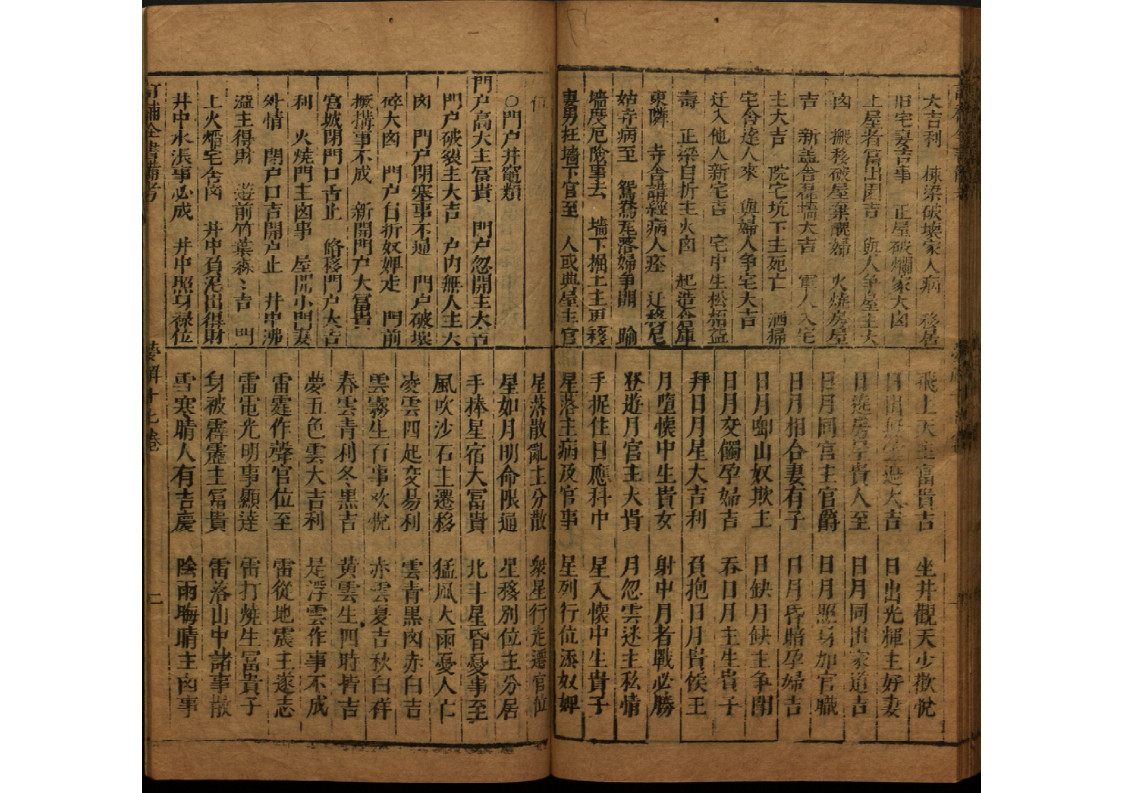 大吉利　棟梁破壞家人病　移居
旧宅妻吉事　正屋破爛家大凶
上屋者富　與人争屋主大
凶　搬移破屋棄醜婦　火燒房屋
吉　新盖舍　墻大吉　軍人入宅
主大吉　院宅坑下主死亡　洒掃
宅舍遠人來　與婦人争宅大吉
迁入他人新宅吉　宅中生松栢益
壽　正梁自折主大凶　起造倉庫
東隣　寺舍講經病人痊　迁移尼
姑寺病至　鴛鴦尾落婦争鬪　踰
墻度厄險事去　墻下掘土主更移
妻男在墻下官至　人或典屋主官
飛上天主富貴吉　坐井觀天少歡悅
日出光輝主好妻
日月同出家道吉
日月同宫主官爵　日月照身加官職
日月相合妻有子　日月昏暗孕婦吉
日月啣山奴欺主　日缺月缺主争鬪
日月交觸孕婦吉　吞日月主生貴子
拜日月星大吉利　負抱日月貴侯王
月墮懷中生貴女　射中月者戰必勝
登遊月宫主大貴　月忽雲迷主私情
手捉住日應科中　星入懷中生貴子
星落主病及官事　星列行位添奴婢
位
○門户井竈類
門户高大主富貴　門户忽開主大吉
門户破裂主大吉　户内無人主大
凶　門户閉塞事不通　門户破壞
碎大凶　門户自折奴婢走　門前
掘搆事不成　新開門户大富貴
宫城閉門口舌止　俻移門户大吉
利　火燒門主凶事　屋開小門妻
外情　閉户口吉開户止　井中沸
溢主得財　遊前竹葉森〻吉　門
上火燭宅舍凶　井中負泥出得財
井中水漲事必成　井中照身禄位
星落散亂主分散　衆星行走遷官位
星如月明命限通　星移别位主分居
手捧星宿大富貴　北斗星昏憂事至
風吹沙石主遷移　猛風大雨憂人亡
凌雲四起交易利　雲青黑凶赤白吉
雲霧生百事歡悅　赤雲夏吉秋白祥
春雲青利冬黑吉　黄雲生四時皆吉
夢五色雲大吉利　是浮雲作事不成
雷霆作聲官位至　雷從地震主遂志
雷電光明事顯達　雷打燒生富貴子
身被霹靂主富貴　雷落山中諸事散
雪寒晴人有吉慶　陰雨晦晴主凶事
夢解十九卷
二